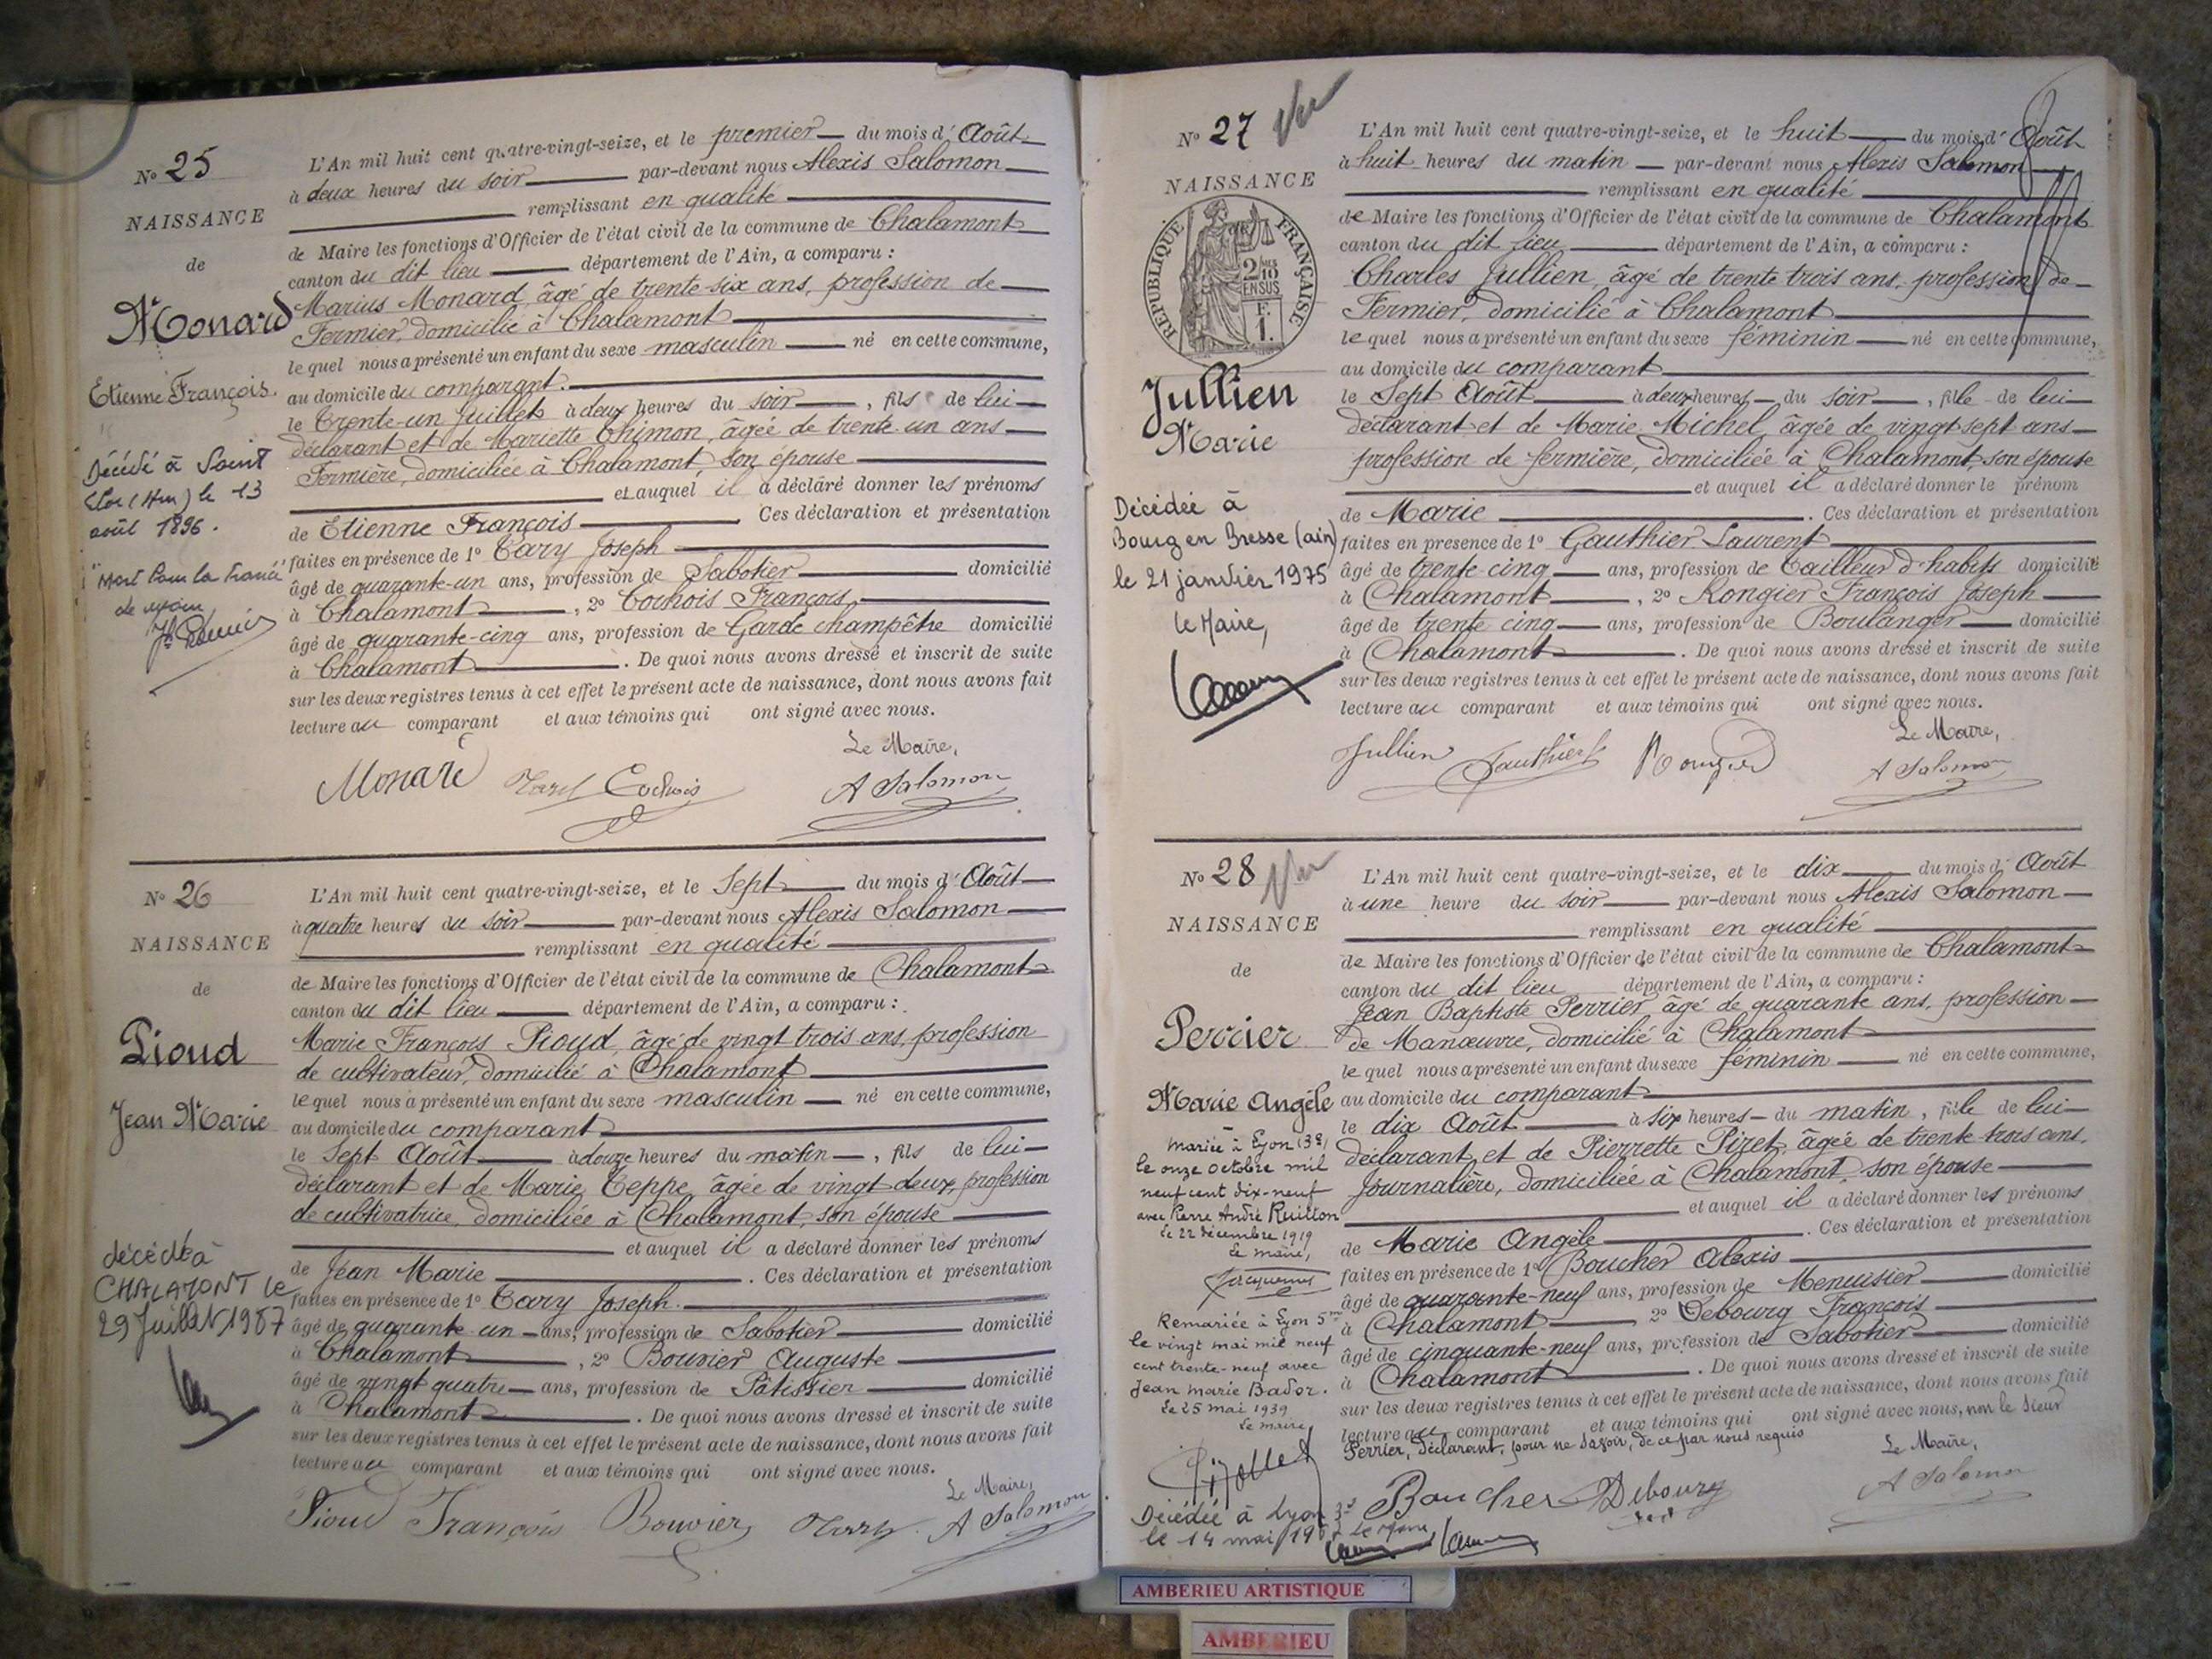 N° 25
NAISSANCE
de
Monard
Etienne François.
Décédé à Saint
le 13
août 1896.
"Mort Pour la France"
L'An mil huit cent quatre-vingt-seize, et le premier du mois d'Août
à deux heures du soir par-devant nous Alexis Salomon
remplissant en qualité
de Maire les fonctions d'Officier de l'état civil de la commune de Chalamont
canton du dit lieu département de l'Ain, a comparu :
Marius Monard, âgé de trente-six ans, profession de
Fermier, domicilié à Chalamont
lequel nous a présenté un enfant du sexe masculin né en cette commune,
au domicile du comparant.
le trente-un Juillet à deux heures du soir, fils de lui
déclarant et de Mariette Thimon, âgée de trente-un ans
Fermière, domiciliée à Chalamont, son épouse
et auquel il a déclaré donner les prénoms
de Etienne François. Ces déclaration et présentation
faites en présence de 1° Tary Joseph
âgé de quarante-un ans, profession de Sabotier domicilié
à Chalamont, 2° Cochois François
âgé de quarante-cinq ans, profession de Garde champêtre domicilié
à Chalamont. De quoi nous avons dressé et inscrit de suite
sur les deux registres tenus à cet effet le présent acte de naissance, dont nous avons fait
lecture au comparant et aux témoins qui ont signé avec nous.
Le Maire,
Monard Tary Cochois A Salomon
N° 26
NAISSANCE
de
Pioud
Jean Marie
décédé à
CHALAMONT le
29 Juillet 1987
L'An mil huit cent quatre-vingt-seize, et le Sept du mois d'Août
à quatre heures du soir par-devant nous Alexis Salomon
remplissant en qualité
de Maire les fonctions d'Officier de l'état civil de la commune de Chalamont
canton du dit lieu département de l'Ain, a comparu :
Marie François Pioud, âgé de vingt trois ans, profession
de cultivateur, domicilié à Chalamont
lequel nous a présenté un enfant du sexe masculin né en cette commune,
au domicile du comparant
le Sept Août à douze heures du matin, fils de lui
déclarant et de Marie Teppe, âgée de vingt deux, profession
de cultivatrice, domiciliée à Chalamont, son épouse
et auquel il a déclaré donner les prénoms
de Jean Marie. Ces déclaration et présentation
faites en présence de 1° Tary Joseph.
âgé de quarante un ans, profession de Sabotier domicilié
à Chalamont, 2° Bouvier Auguste
âgé de vingt quatre ans, profession de Pâtissier domicilié
à Chalamont. De quoi nous avons dressé et inscrit de suite
sur les deux registres tenus à cet effet le présent acte de naissance, dont nous avons fait
lecture au comparant et aux témoins qui ont signé avec nous.
Le Maire,
Pioud François Bouvier Tary A Salomon
N° 27 Vu
NAISSANCE
RÉPUBLIQUE FRANÇAISE
2/10
EN SUS
F.
1.
Jullien
Marie
Décédée à
Bourg en Bresse (ain)
le 21 janvier 1975
le Maire,
L'An mil huit cent quatre-vingt-seize, et le huit du mois d'Août
à huit heures du matin par-devant nous Alexis Salomon
remplissant en qualité
de Maire les fonctions d'Officier de l'état civil de la commune de Chalamont
canton du dit lieu département de l'Ain, a comparu :
Charles Jullien, âgé de trente trois ans, profession de
Fermier, domicilié à Chalamont
lequel nous a présenté un enfant du sexe féminin né en cette commune,
au domicile du comparant
le Sept Août à deux heures du soir, fille de lui
déclarant et de Marie Michel, âgée de vingt-sept ans
profession de fermière, domiciliée à Chalamont, son épouse
et auquel il a déclaré donner le prénom
de Marie. Ces déclaration et présentation
faites en présence de 1° Gauthier Laurent
âgé de trente-cinq ans, profession de Tailleur d'habits domicilié
à Chalamont, 2° Rongier François Joseph
âgé de trente cinq ans, profession de Boulanger domicilié
à Chalamont. De quoi nous avons dressé et inscrit de suite
sur les deux registres tenus à cet effet le présent acte de naissance, dont nous avons fait
lecture au comparant et aux témoins qui ont signé avec nous.
Le Maire,
Jullien Gauthier Rongier A Salomon
N° 28 Vu
NAISSANCE
de
Perrier
Marie Angèle
Mariée à Lyon (3e)
le onze octobre mil
neuf cent dix-neuf
avec Pierre André Ruitton
le 22 décembre 1919
Le maire,
Remariée à Lyon 5me
le vingt mai mil neuf
cent trente-neuf avec
Jean Marie Bador.
Le 25 mai 1939
Le maire
Décédée à Lyon 3e
le 14 mai Le Maire
L'An mil huit cent quatre-vingt-seize, et le dix du mois d'Août
à une heure du soir par-devant nous Alexis Salomon
remplissant en qualité
de Maire les fonctions d'Officier de l'état civil de la commune de Chalamont
canton du dit lieu département de l'Ain, a comparu :
Jean Baptiste Perrier âgé de quarante ans, profession
de Manœuvre, domicilié à Chalamont
lequel nous a présenté un enfant du sexe féminin né en cette commune,
au domicile du comparant
le dix Août à six heures du matin, fille de lui
déclarant et de Pierrette Pizet, âgée de trente-trois ans,
Journalière, domiciliée à Chalamont, son épouse
et auquel il a déclaré donner les prénoms
de Marie Angèle. Ces déclaration et présentation
faites en présence de 1° Boucher Alexis
âgé de quarante-neuf ans, profession de Menuisier domicilié
à Chalamont 2° Debourg François
âgé de cinquante-neuf ans, profession de Sabotier domicilié
à Chalamont. De quoi nous avons dressé et inscrit de suite
sur les deux registres tenus à cet effet le présent acte de naissance, dont nous avons fait
lecture au comparant et aux témoins qui ont signé avec nous, non le sieur
Perrier, déclarant, pour ne savoir, de ce par nous requis
Le Maire,
Boucher Debourg A Salomon
AMBERIEU ARTISTIQUE
AMBERIEU